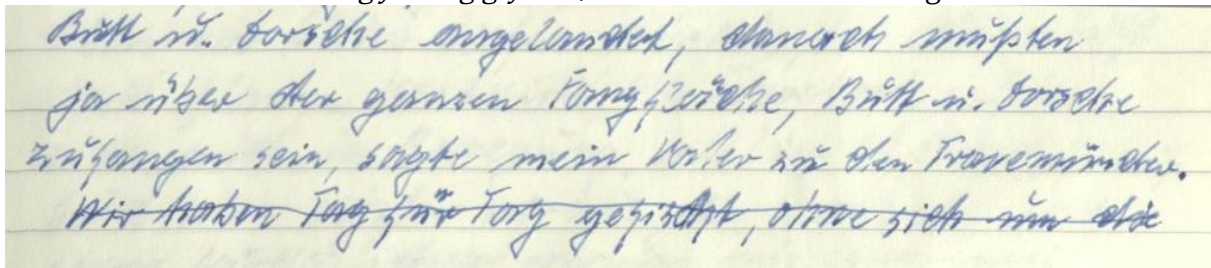 Butt u. Dorsche angelandet, danach mußten
ja über der ganzen Fangfläche, Butt u. Dorsche
zufangen sein, sagte mein Vater zu den Travemünder.
Wir haben Tag für Tag gefischt, ohne sich um die